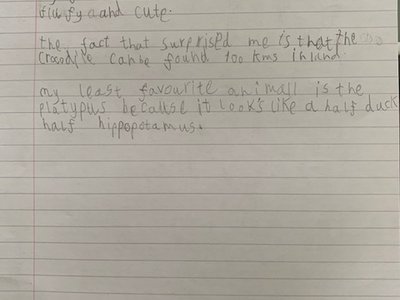 flufyaand cute.
the fact that surprised me is that the
crocodile can be found 100 kms inland.
my least favourite animall is the
platypus because it look's like a half duck
half hippopotamus.